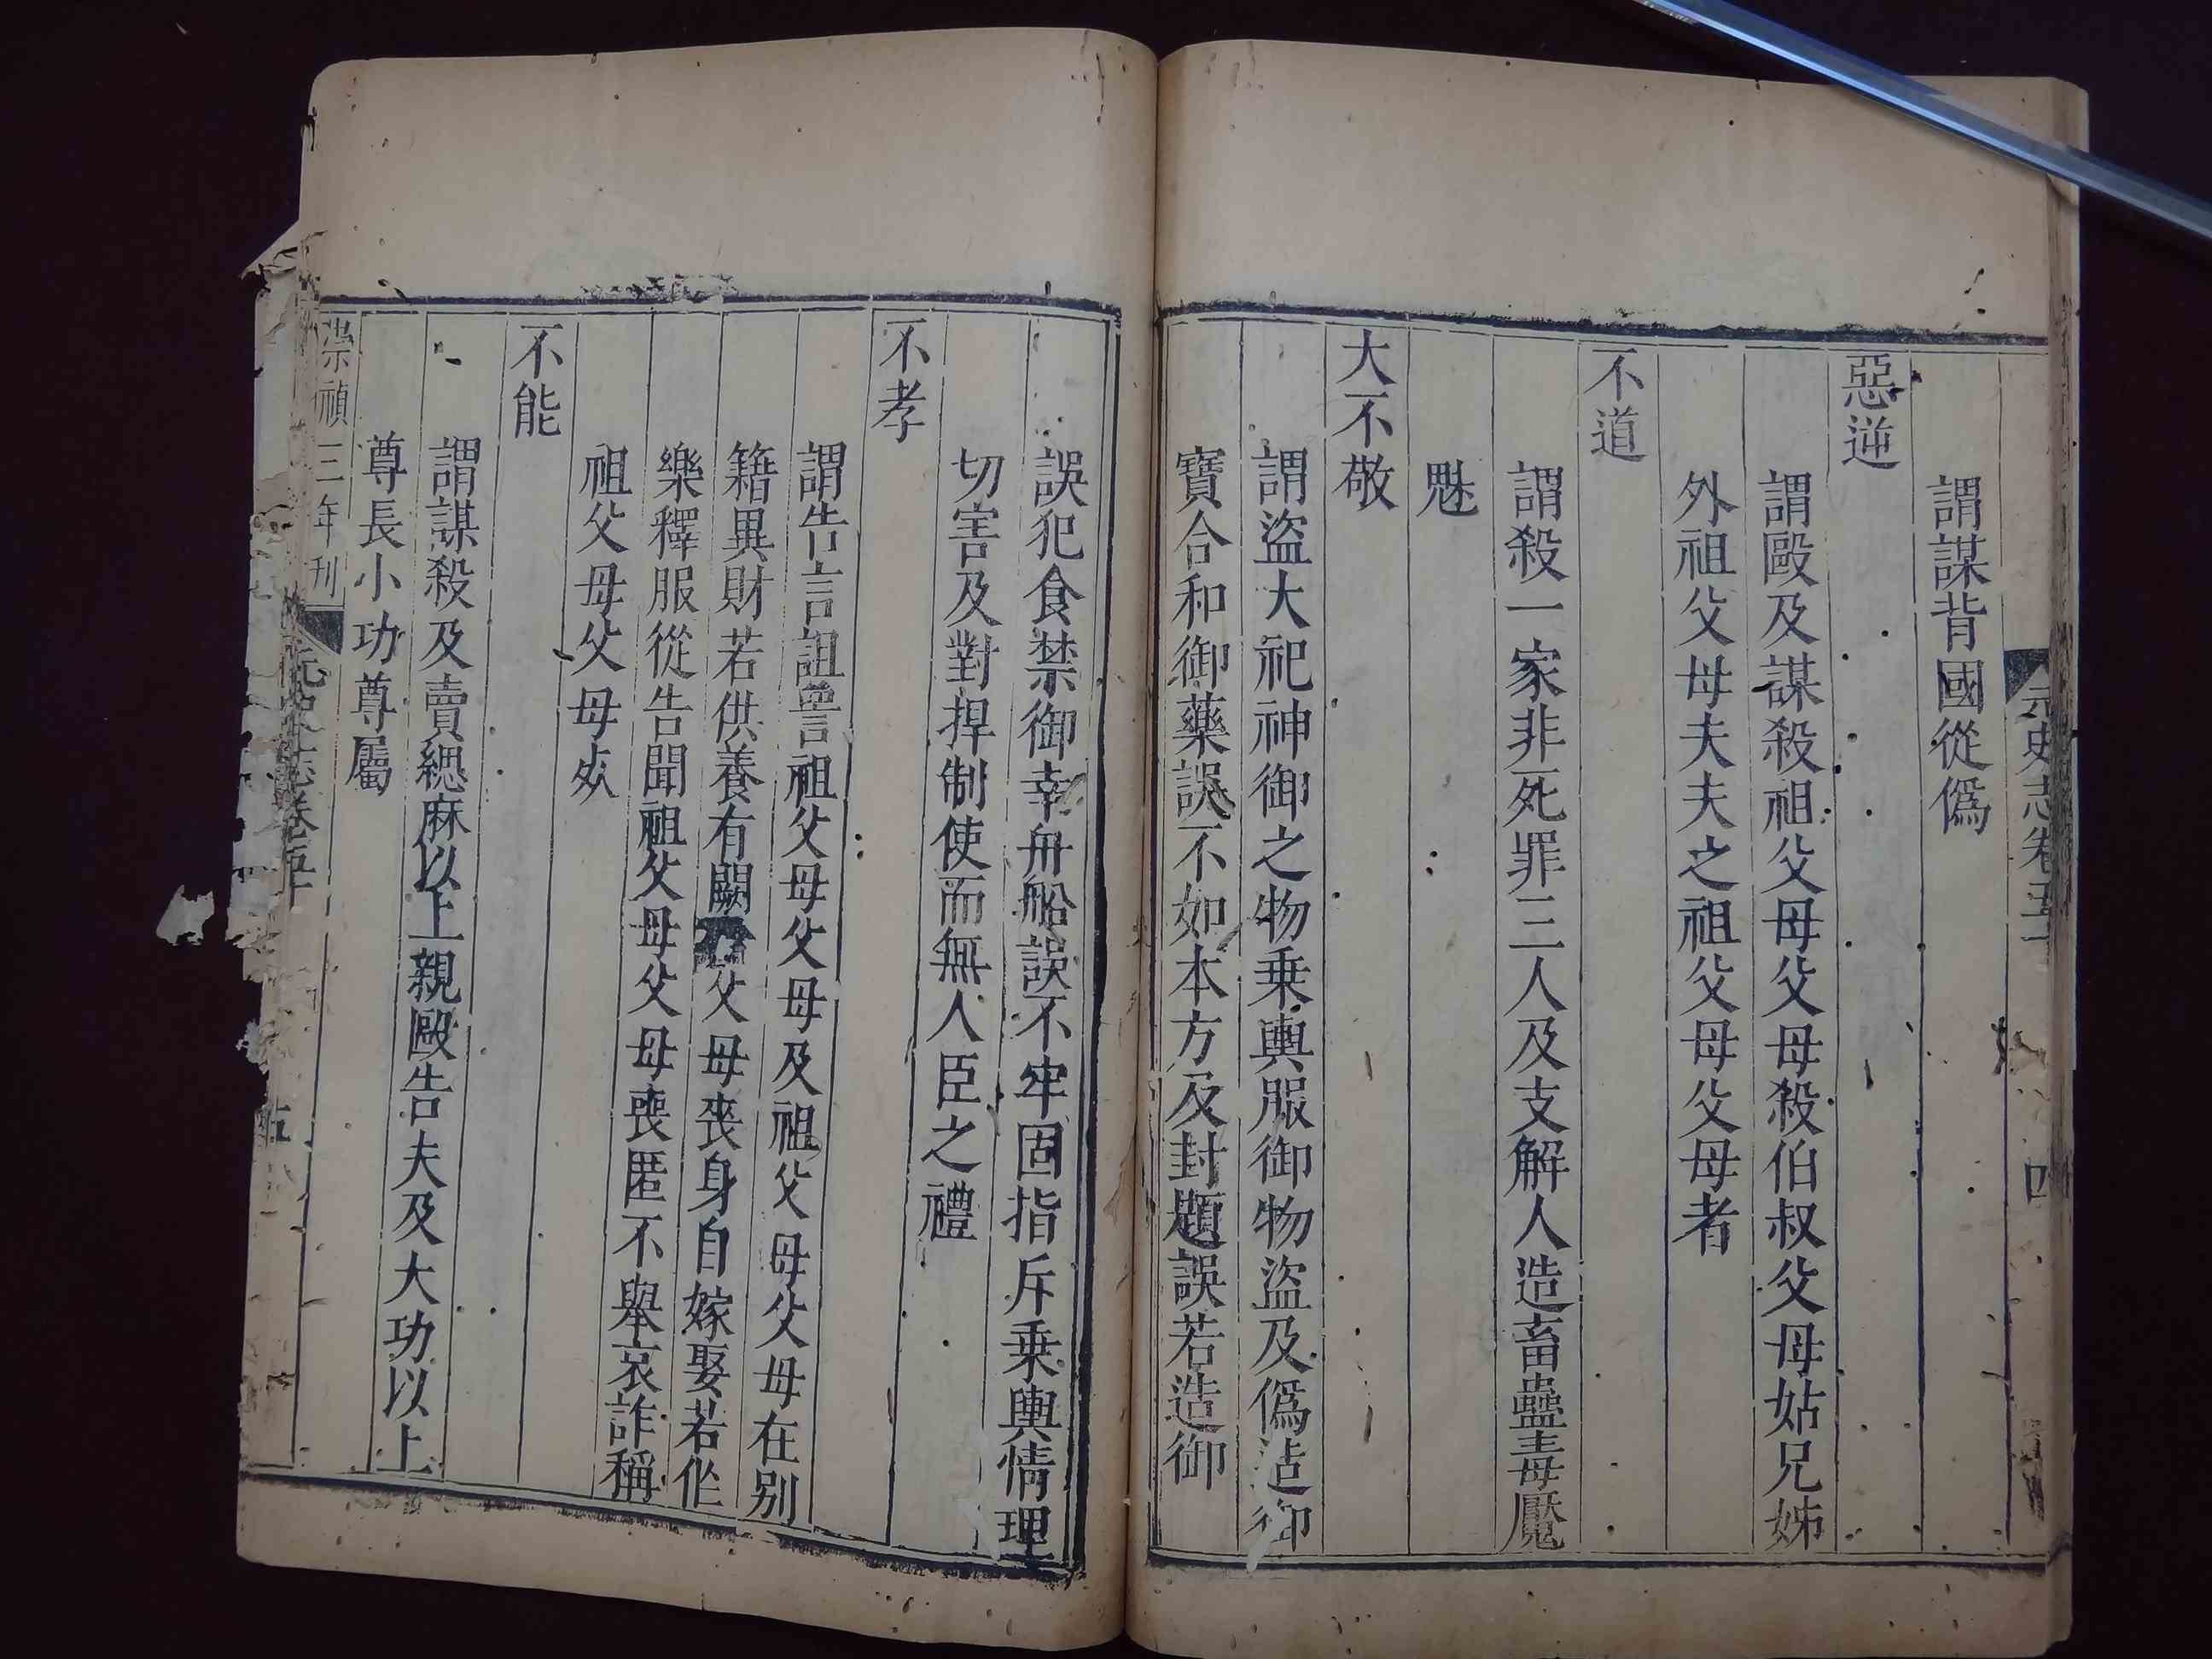 元史志卷五十 四
謂謀背國從僞
惡逆
謂毆及謀殺祖父母父母殺伯叔父母姑兄姊
外祖父母夫夫之祖父母父母者
不道
謂殺一家非死罪三人及支解人造畜蠱毒魘
魅
大不敬
謂盜大祀神御之物乗輿服御物盜及僞造御
寶合和御藥誤不如本方及封題誤若造御
誤犯食禁御幸舟船誤不牢固指斥乗輿情理
切害及對捍制使而無人臣之禮
不孝
謂告言詛詈祖父母父母及祖父母父母在别
籍異財若供養有闕父母喪身自嫁娶若作
樂釋服從告聞祖父母父母喪匿不舉哀詐稱
祖父母父母死
不能
謂謀殺及賣緦麻以上親毆告夫及大功以上
尊長小功尊屬
崇禎三年刊 元史志卷五十 五